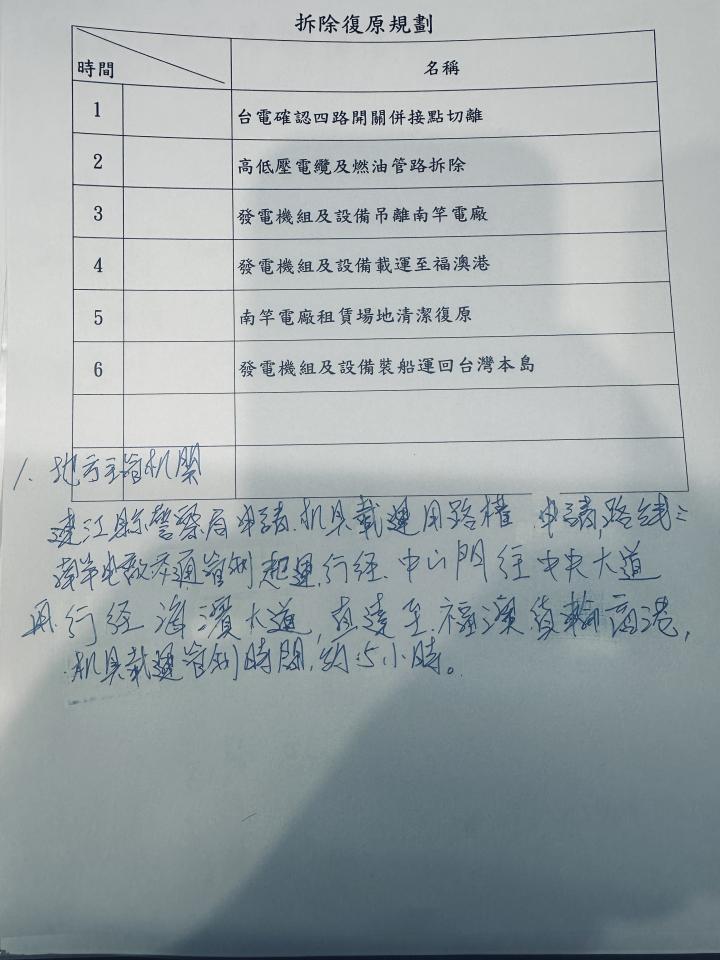 拆除復原規劃
時間 名稱
1 台電確認四路開關併接點切離
2 高低壓電纜及燃油管路拆除
3 發電機組及設備吊離南竿電廠
4 發電機組及設備載運至福澳港
5 南竿電廠租賃場地清潔復原
6 發電機組及設備裝船運回台灣本島
1. 地方主管机関
連江縣警察局申請.机具載運用路權 申請,路线:
南竿电廠交通管制起運.行経.中山門経中央大道
再行経海濱大道,直達至.福澳貨輪商港,
机具載運管制時間,約:5小時。